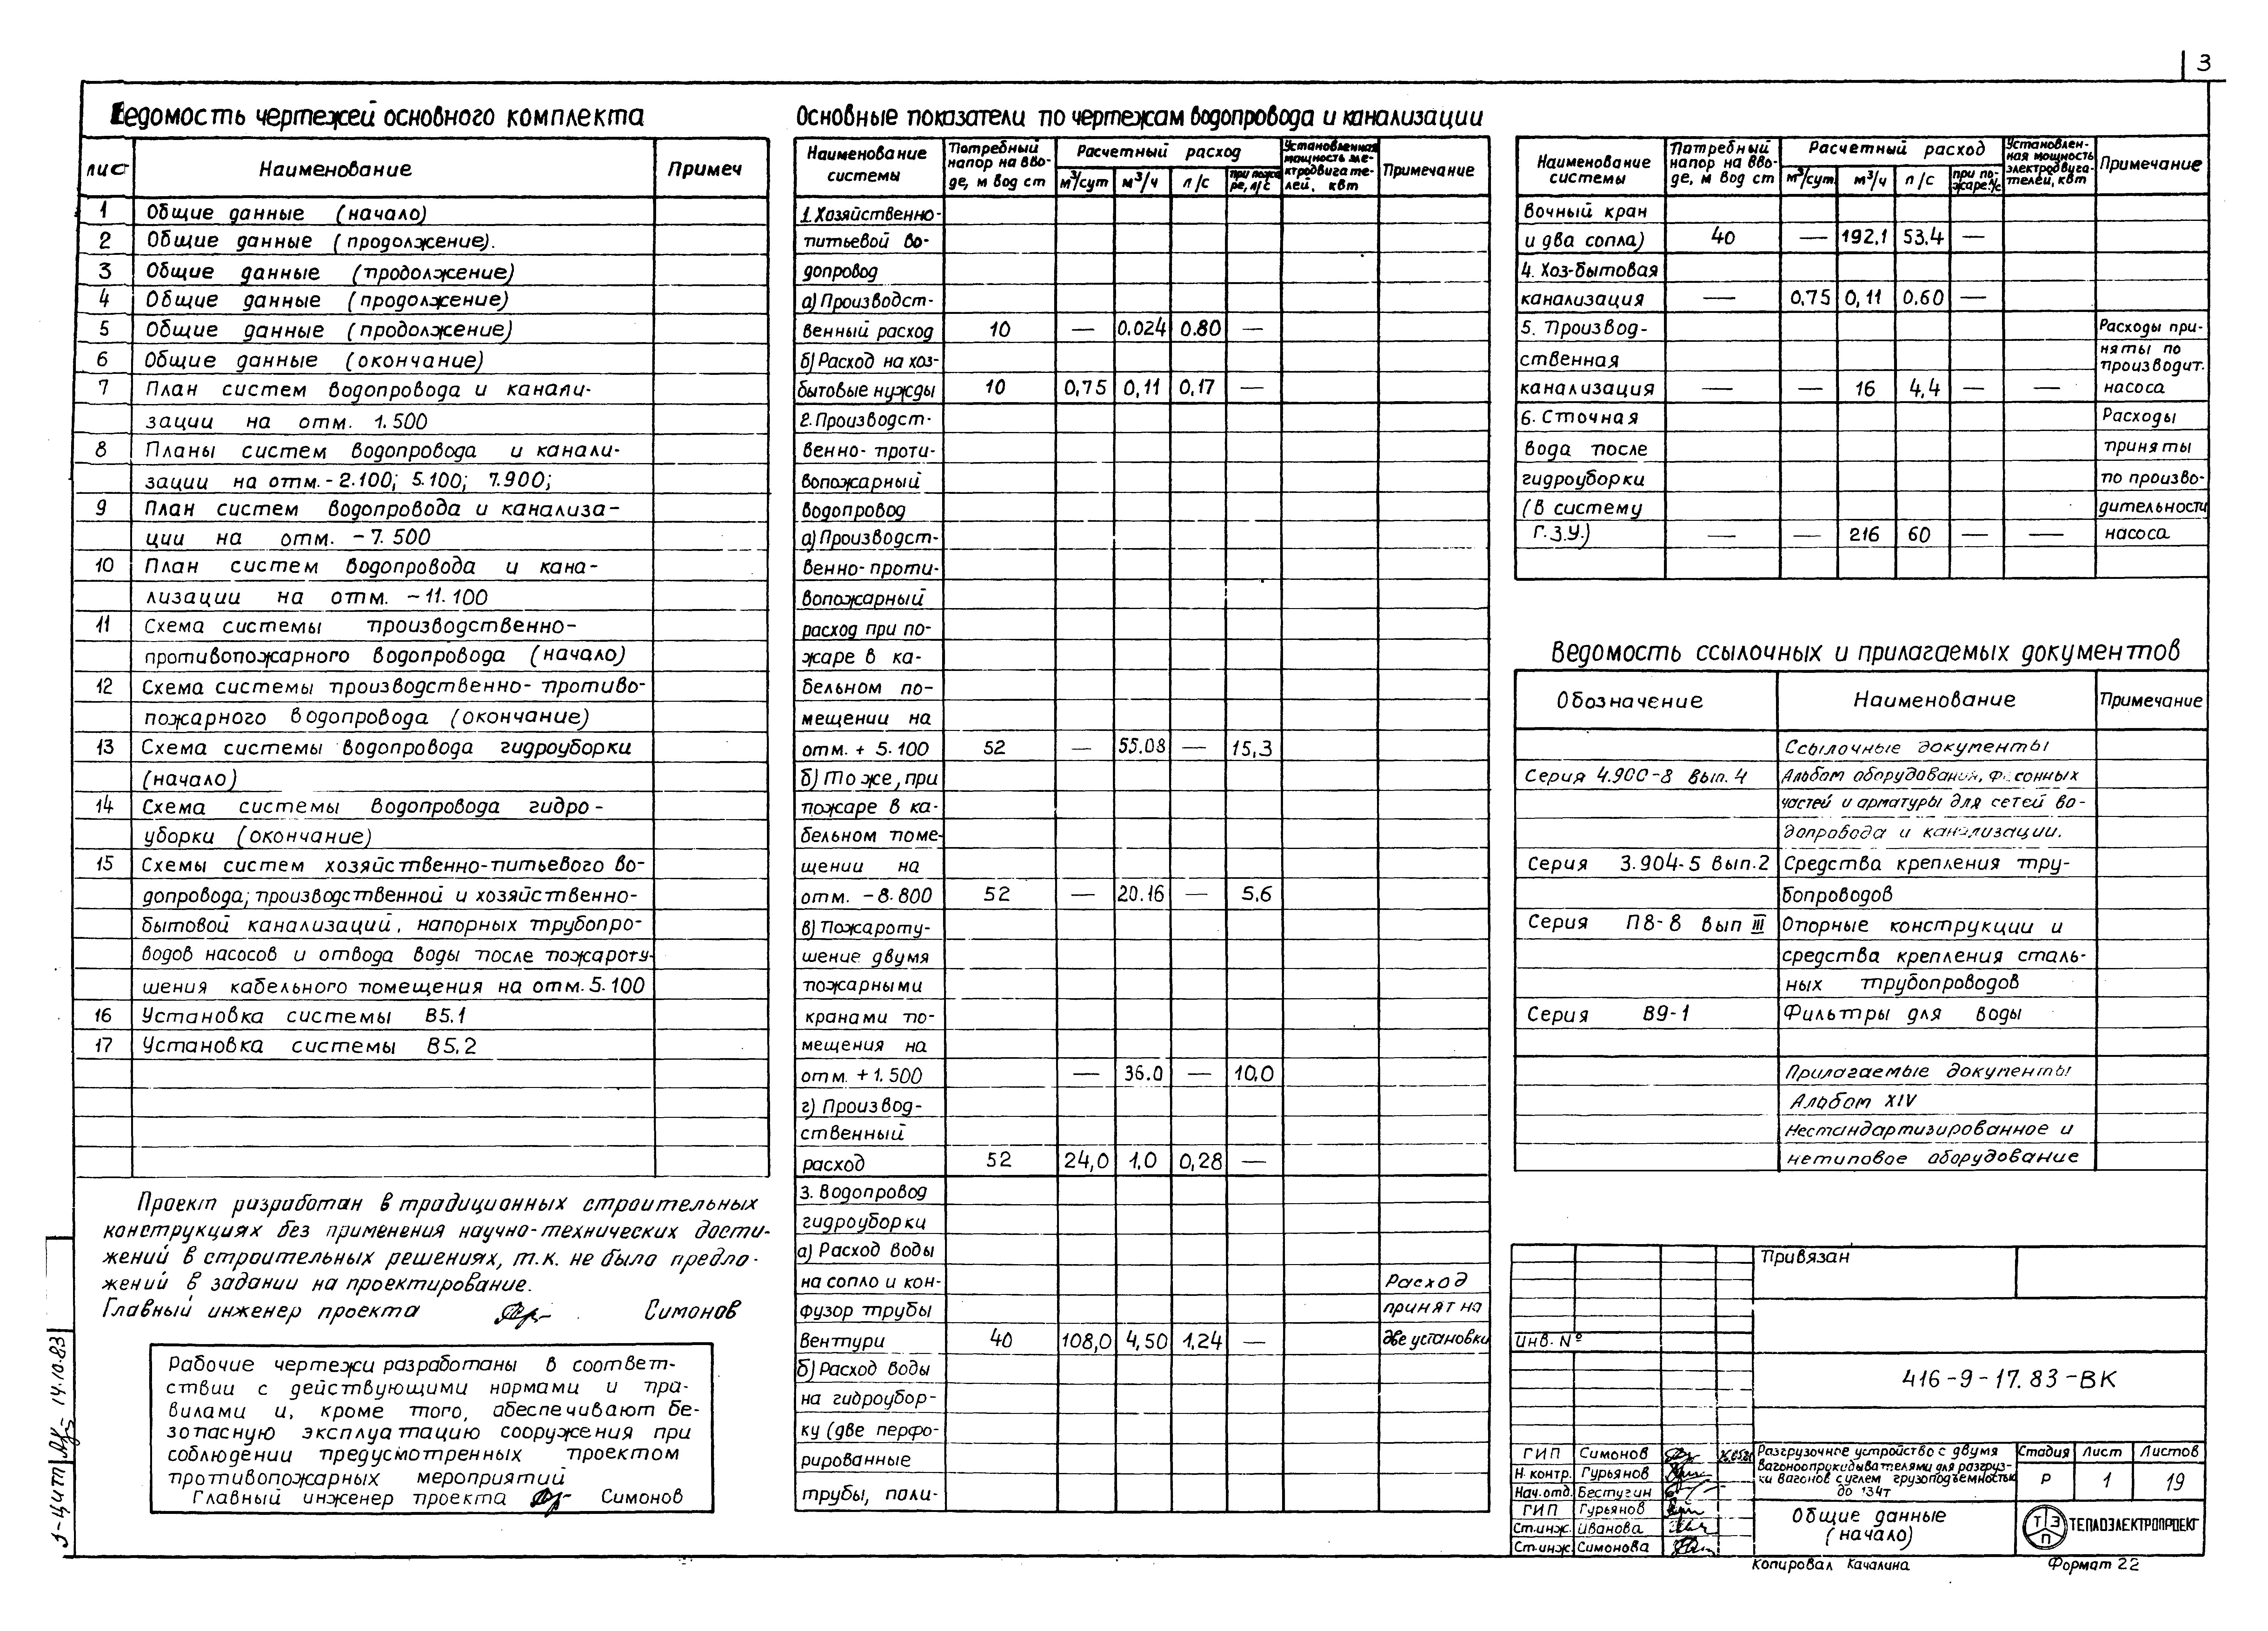 3
Ведомость чертежей основного комплекта
лист Наименование Примеч
1 Общие данные (начало)
2 Общие данные (продолжение).
3 Общие данные (продолжение)
4 Общие данные (продолжение)
5 Общие данные (продолжение)
6 Общие данные (окончание)
7 План систем водопровода и канали-
зации на отм. 1.500
8 Планы систем водопровода и канали-
зации на отм. -2.100; 5.100; 7.900;
9 План систем водопровода и канализа-
ции на отм. -7.500
10 План систем водопровода и кана-
лизации на отм. -11.100
11 Схема системы производственно-
противопожарного водопровода (начало)
12 Схема системы производственно-противо-
пожарного водопровода (окончание)
13 Схема системы водопровода гидроуборки
(начало)
14 Схема системы водопровода гидро-
уборки (окончание)
15 Схемы систем хозяйственно-питьевого во-
допровода; производственной и хозяйственно-
бытовой канализаций, напорных трубопро-
водов насосов и отвода воды после пожароту-
шения кабельного помещения на отм. 5.100
16 Установка системы В5.1
17 Установка системы В5.2
Проект разработан в традиционных строительных
конструкциях без применения научно-технических дости-
жений в строительных решениях, т.к. не было предло-
жений в задании на проектирование.
Главный инженер проекта Симонов
Рабочие чертежи разработаны в соответ-
ствии с действующими нормами и пра-
вилами и, кроме того, абеспечивают бе-
зопасную эксплуатацию сооружения при
соблюдении предусмотренных проектом
противопожарных мероприятий
Главный инженер проекта Симонов
14.10.83
Основные показатели по чертежам водопровода и канализации
Наименование системы Потребный напор на вво-де, м вод ст Расчетный расход м³/сут м³/ч л/с при пожаре, л/с Установленная мощность электродвигателей, квт Примечание
1. Хозяйственно-
питьевой во-
допровод
а) Производст-
венный расход 10 — 0.024 0.80 —
б) Расход на хоз-
бытовые нужды 10 0,75 0,11 0,17 —
2. Производст-
венно-проти-
вопожарный
водопровод
а) Производст-
венно-проти-
вопожарный
расход при по-
жаре в ка-
бельном по-
мещении на
отм. + 5.100 52 — 55.08 — 15,3
б) То же, при
пожаре в ка-
бельном поме-
щении на
отм. -8.800 52 — 20.16 — 5.6
в) Пожароту-
шение двумя
пожарными
кранами по-
мещения на
отм. +1.500 — 36.0 — 10,0
г) Производ-
ственный
расход 52 24,0 1.0 0,28 —
3. Водопровод
гидроуборки
а) Расход воды
на сопло и кон- Расход
фузор трубы принят на
Вентури 40 108,0 4,50 1,24 — две установки
б) Расход воды
на гидроубор-
ку (две перфо-
рированные
трубы, поли-
Наименование системы Потребный напор на вво-де, м вод ст Расчетный расход м³/сут м³/ч л/с при по-жаре л/с Установлен-ная мощность электродвига-телей, квт Примечание
вочный кран
и два сопла) 40 — 192,1 53,4 —
4. Хоз-бытовая
канализация — 0,75 0,11 0.60 —
5. Производ- Расходы при-
ственная няты по производит.
канализация — — 16 4,4 — — насоса
6. Сточная Расходы
вода после приняты
гидроуборки по произво-
(в систему дительности
Г.З.У.) — — 216 60 — — насоса
Ведомость ссылочных и прилагаемых документов
Обозначение Наименование Примечание
Ссылочные документы
Серия 4.900-8 вып. 4 Альбом оборудования, фасонных
частей и арматуры для сетей во-
допровода и канализации.
Серия 3.904-5 вып.2 Средства крепления тру-
бопроводов
Серия П8-8 вып III Опорные конструкции и
средства крепления сталь-
ных трубопроводов
Серия В9-1 Фильтры для воды
Прилагаемые документы
Альбом XIV
Нестандартизированное и
нетиповое оборудование
Привязан
Инв. №
416-9-17.83-ВК
ГИП Симонов
Н. контр. Гурьянов
Нач. отд. Бестугин
ГИП Гурьянов
Ст.инж. Иванова
Ст.инж. Симонова
Разгрузочное устройство с двумя
вагоноопрокидывателями для разгруз-
ки вагонов с углем грузоподъемностью
до 134т
Стадия Лист Листов
Р 1 19
Общие данные
(начало)
ТЭП ТЕПЛОЭЛЕКТРОПРОЕКТ
Копировал Качалина Формат 22